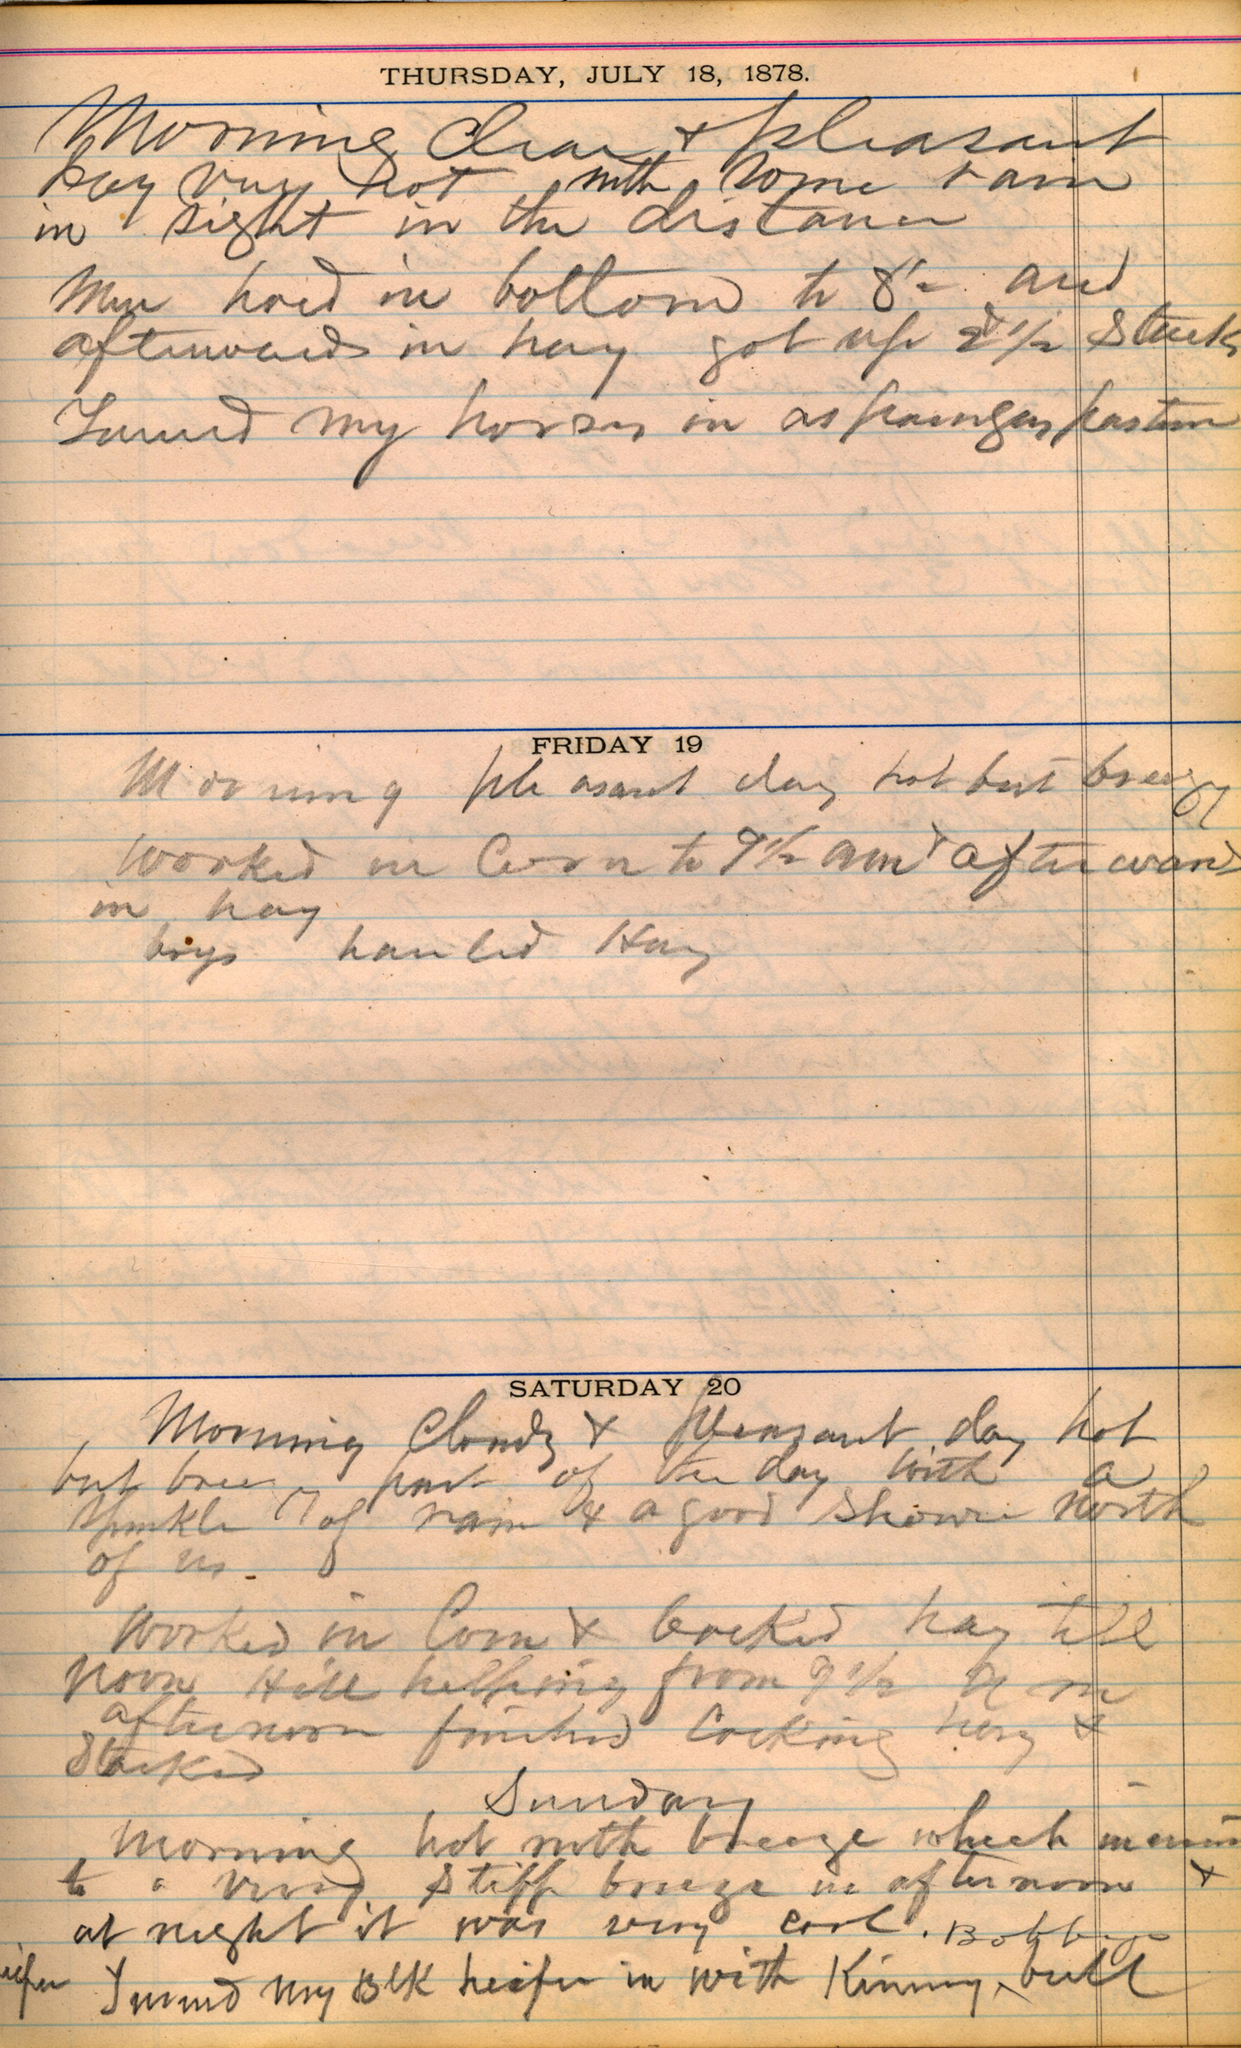 THURSDAY, JULY 18, 1878.
Morning Clear & pleasant
Day very hot with some rain
in sight in the distance
Men hoed in bottom to 8½ and
afterwards in hay got up 2 1/2 Stacks
Turned my horses in pasture
FRIDAY 19
Morning pleasant day hot but breezy
Worked in Corn to 9½ am & afterwards
in hay
boys hauled Hay
SATURDAY 20
Morning Cloudy & pleasant day hot
but breezy part of the day with a
sprinkle of rain & a good shower North
of us.
Worked in Corn & Cocked hay till
Noon Hill helping from 9 1/2 A m
afternoon finished Cocking hay &
Stacked
Sunday
Morning hot with breeze which
to a very Stiff breeze in afternoon &
at night it was very cool. Bobby
heifer Turned my Blk heifer in with Kinney bull